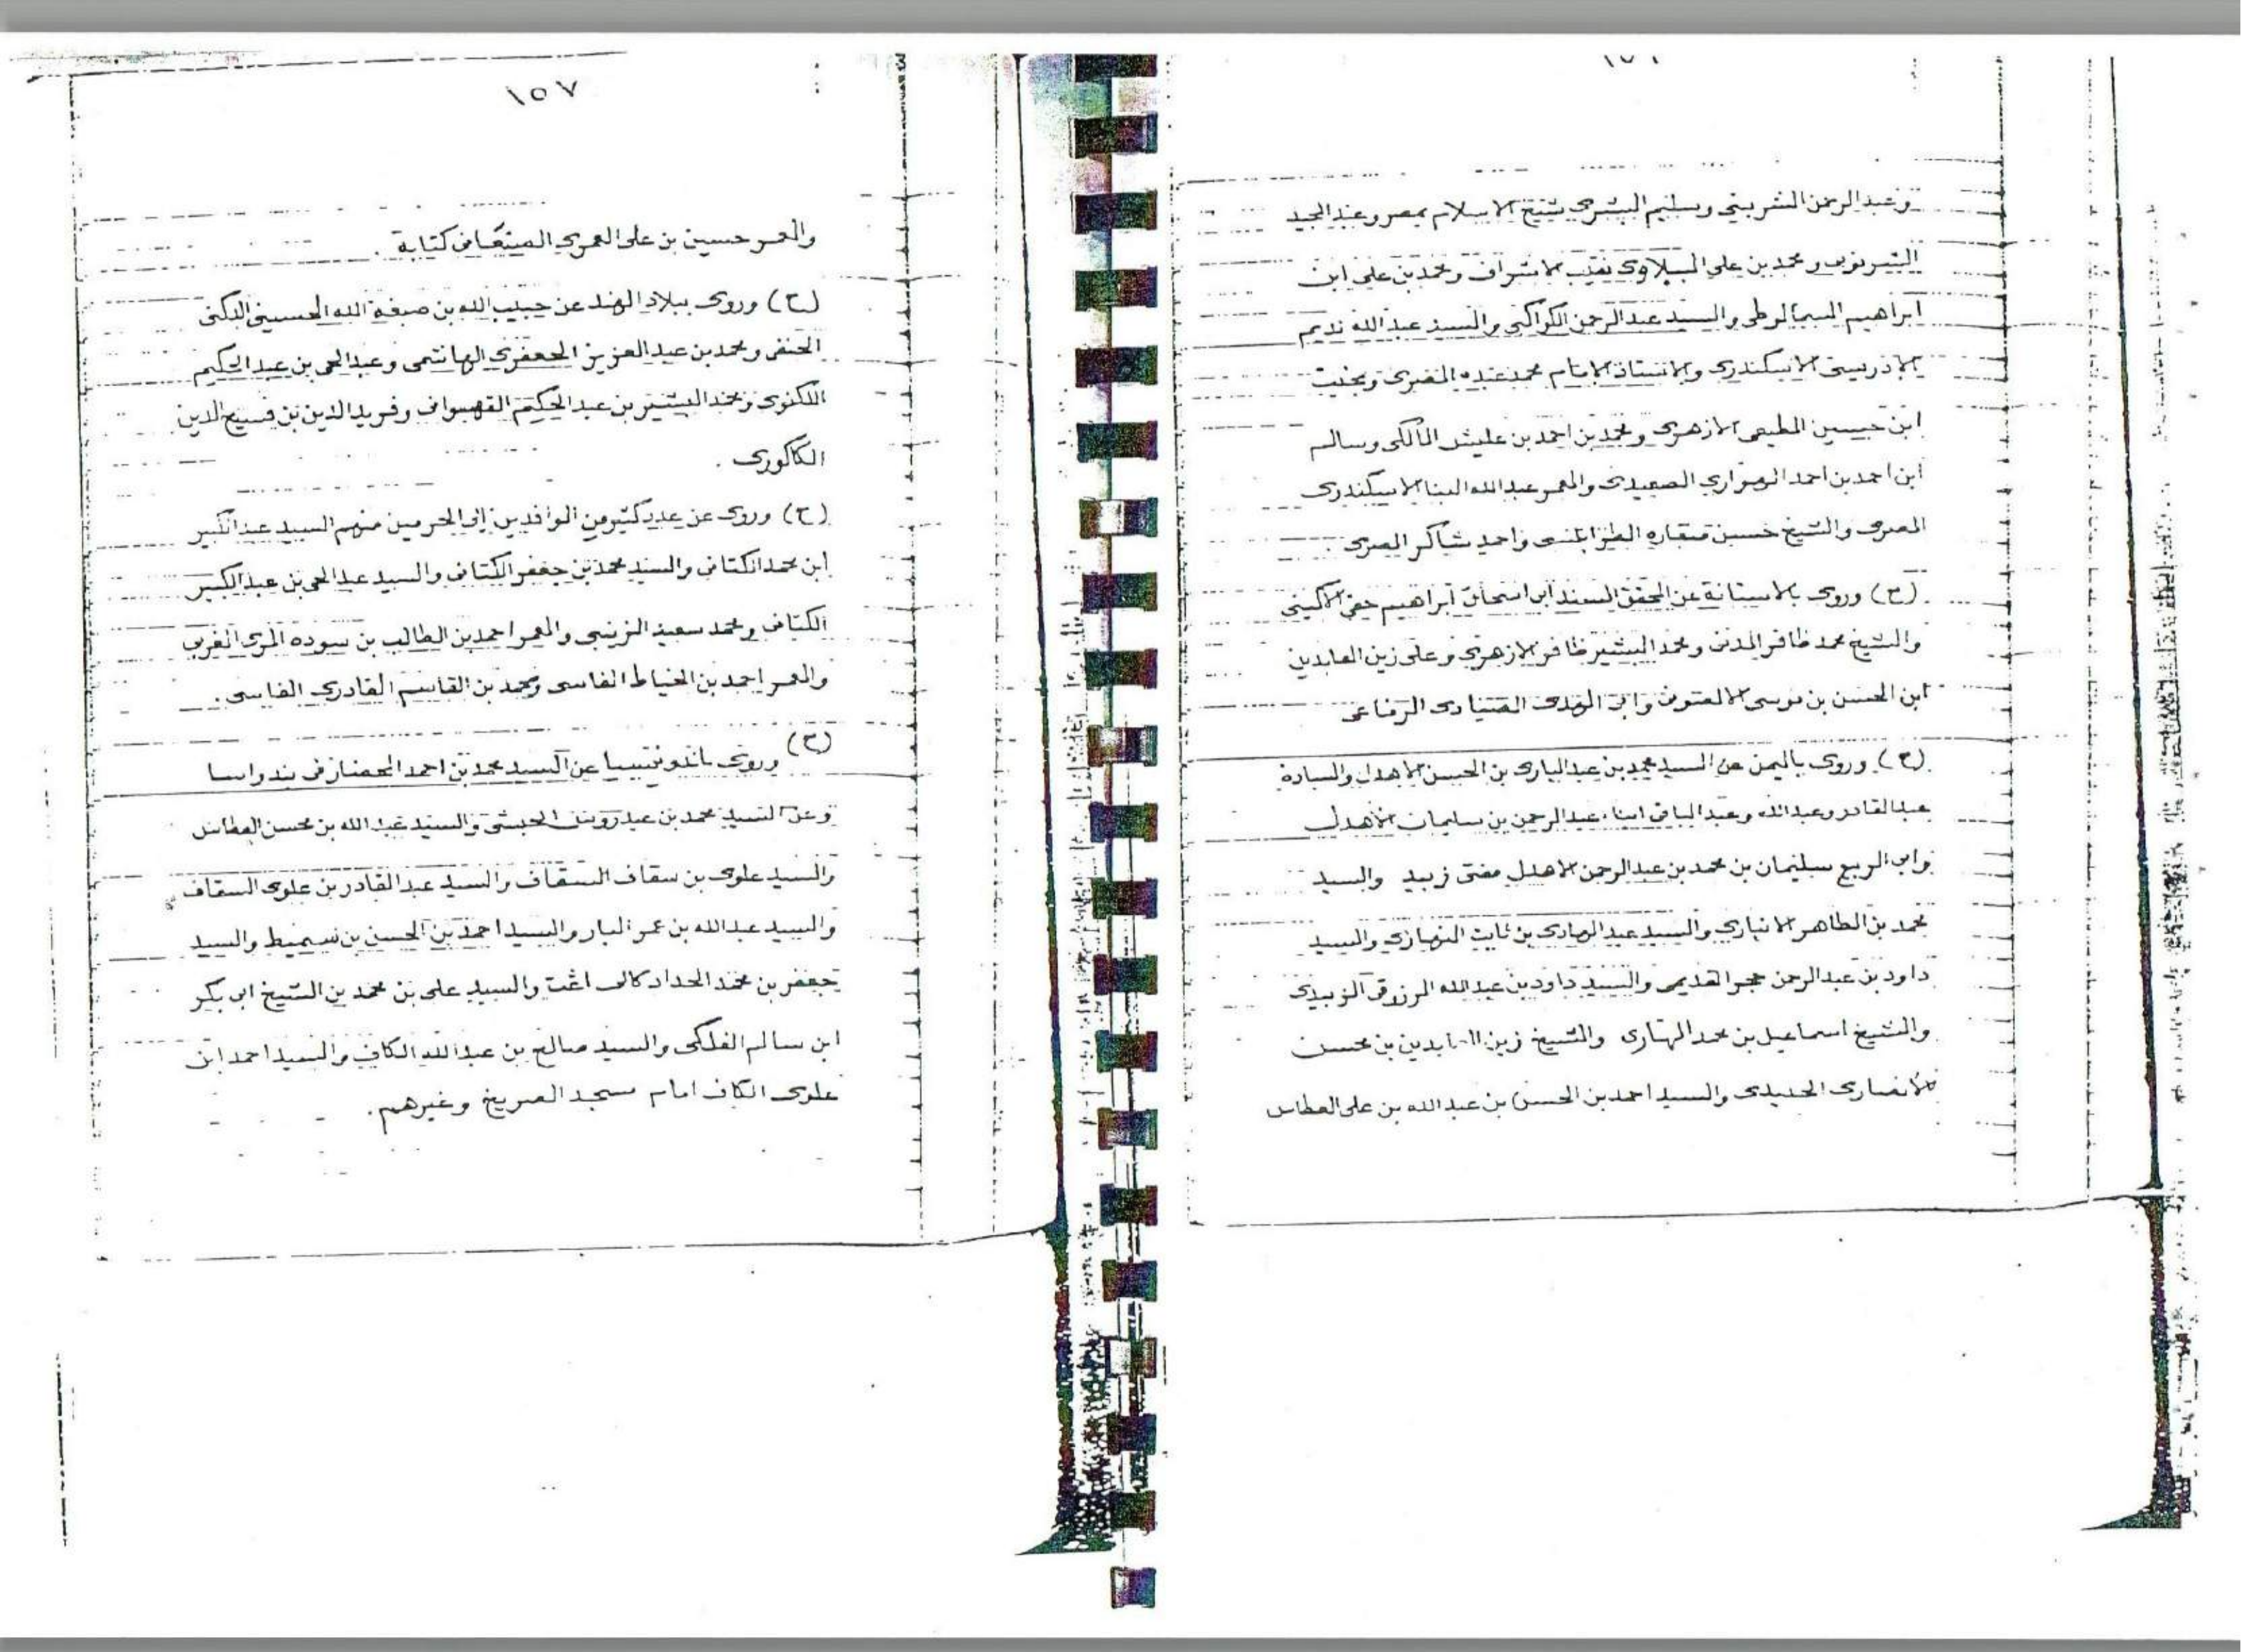 وعبد الرحمن الشربيني وسليم البشرى شيخ الاسلام بمصر وعبد المجيد
الشرنوبى ومحمد بن على الببلاوى نقيب الاشراف ومحمد بن على ابن
ابراهيم السمالوطى والسيد عبد الرحمن الكواكبى والسيد عبد الله نديم
الادريسى الاسكندرى والاستاذ الامام محمد عبده المصرى وبخيت
ابن حسين المطيعى الازهرى ومحمد بن احمد بن عليش المالكى وسالم
ابن احمد بن احمد الصعيدى والمعمر عبد الله البنا الاسكندرى
المصرى والشيخ حسين منقاره الطرابلسى واحمد شاكر المصرى .
(ح) وروى بالاستانة عن المحقق المسند ابى اسحاق ابراهيم حقى الاكينى
والشيخ محمد ظافر المدنى ومحمد البشير ظافر الازهرى وعلى زين العابدين
ابن الحسن بن موسى الالصونى وابى الهدى الصيادى الرفاعى
(ح) وروى باليمن عن السيد محمد بن عبد البارى بن الحسن الاهدل والسادة
عبد القادر وعبد الله وعبد الباقى ابناء عبد الرحمن بن سليمان الاهدل
وابى الربيع سليمان بن محمد بن عبد الرحمن الاهدل مفتى زبيد والسيد
محمد بن الطاهر الانبارى والسيد عبد الهادى بن ثابت النهارى والسيد
داود بن عبد الرحمن حجر القديمى والسيد داود بن عبد الله المرزوقى الزبيدى
والشيخ اسماعيل بن محمد الهتارى والشيخ زين العابدين بن محسن
الانصارى الحديدى والسيد احمد بن الحسن بن عبد الله بن على العطاس
١٥٧
والمعمر حسين بن على العمرى الصنعانى كتابة .
(ح) وروى ببلاد الهند عن حبيب الله بن صبغة الله الحسينى الدكنى
الحنفى ومحمد بن عبد العزيز الجعفرى الهاشمى وعبد الحى بن عبد الحكيم
اللكنوى ومحمد البشير بن عبد الحكيم القهسوانى وفريد الدين بن فسيح الدين
الكاكورى .
(ح) وروى عن عدد كثير من الوافدين إلى الحرمين منهم السيد عبد الكبير
ابن محمد الكتانى والسيد محمد بن جعفر الكتانى والسيد عبد الحى بن عبد الكبير
الكتانى ومحمد سعيد الزينبى والمعمر احمد بن الطالب بن سوده المرى المغربى
والمعمر احمد بن الخياط الفاسى ومحمد بن القاسم القادرى الفاسى .
(ح) وروى باندونيسيا عن السيد محمد بن احمد المحضار فى بندواسا
وعن السيد محمد بن عيدروس الحبشى والسيد عبد الله بن محسن العطاس
والسيد علوى بن سقاف السقاف والسيد عبد القادر بن علوى السقاف
والسيد عبد الله بن عمر البار والسيد احمد بن الحسن بن سميط والسيد
جعفر بن محمد الحداد كالى اغت والسيد على بن محمد بن الشيخ ابى بكر
ابن سالم الفلكى والسيد صالح بن عبد الله الكاف والسيد احمد ابن
علوى الكاف امام مسجد الصريخ وغيرهم .